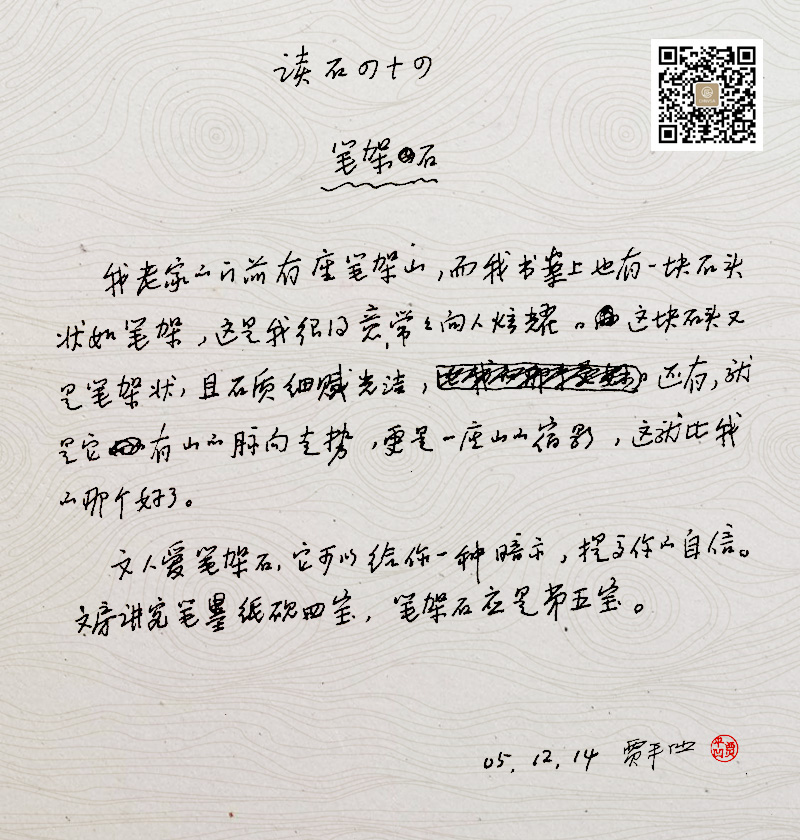 读石四十四
笔架石
我老家门前有座笔架山，而我书案上也有一块石头
状如笔架，这是我很得意，常常向人炫耀。这块石头又
是笔架状，且石质细腻光洁，还有，就
是它有山的脉向走势，更是一座山的缩影，这就比我
的那个好了。
文人爱笔架石，它可以给你一种暗示，提高你的自信。
文房讲究笔墨纸砚四宝，笔架石应是第五宝。
05.12.14 贾平凹
贾平凹